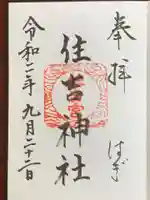 奉拝
はぎ
住吉神社
令和二年九月二十二日